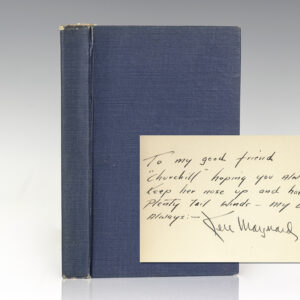 To my good friend
"Churchill" hoping you always
Keep her nose up and have
Plenty tail winds — my
always:—
Ken Maynard